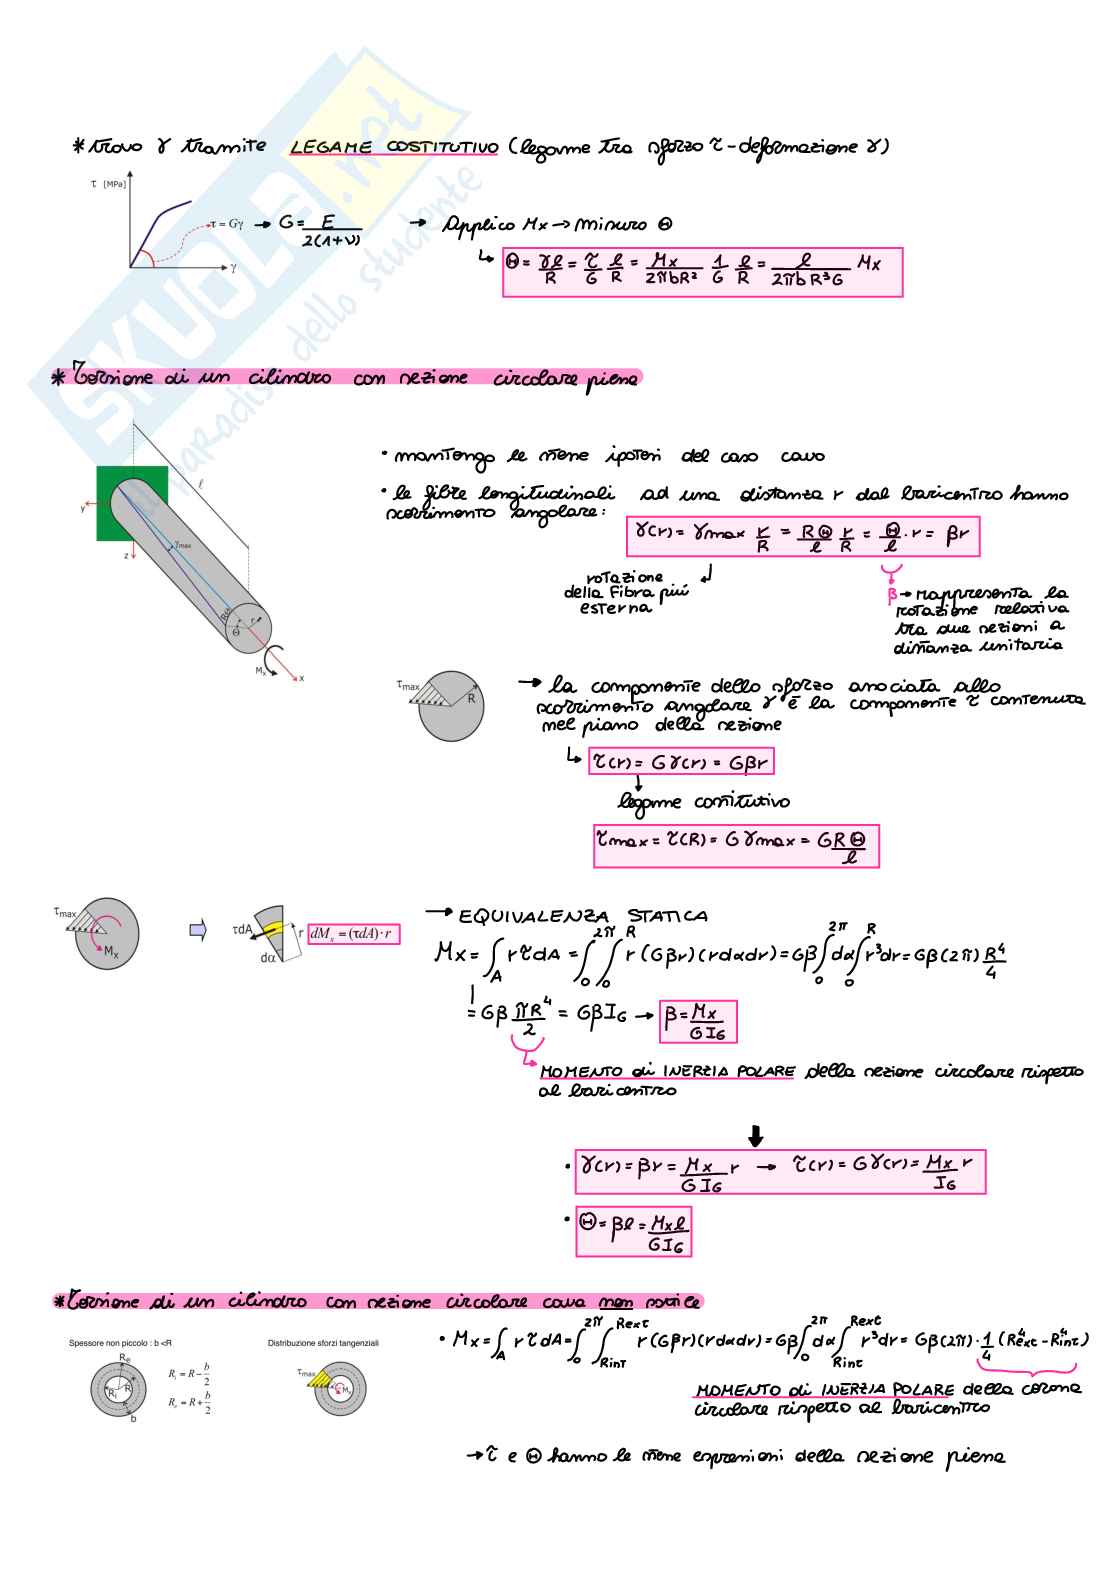 * trovo γ tramite LEGAME COSTITUTIVO (legame tra sforzo τ - deformazione γ)
τ [MPa]
τ = Gγ → G = E / 2(1+ν)
γ
→ Applico Mx → misuro Θ
↳ Θ = γl/R = τ/G l/R = Mx/2πbR² 1/G l/R = l/2πbR³G Mx
SKUOLA.net
il paradiso dello studente
* Torsione di un cilindro con sezione circolare piena
• mantengo le stesse ipotesi del caso cavo
• le fibre longitudinali ad una distanza r dal baricentro hanno
scorrimento angolare:
γ(r) = γmax r/R = RΘ/l r/R = Θ/l · r = βr
rotazione
della fibra più
esterna
β → rappresenta la
rotazione relativa
tra due sezioni a
distanza unitaria
ℓ
y
z
γmax
RΘ
Θ
r
Mx
x
τmax
R
→ la componente dello sforzo associata allo
scorrimento angolare γ è la componente τ contenuta
nel piano della sezione
↳ τ(r) = Gγ(r) = Gβr
legame costitutivo
τmax = τ(R) = Gγmax = GRΘ/l
τmax
Mx
τdA
r
dα
dMx = (τdA)·r
→ EQUIVALENZA STATICA
Mx = ∫A rτdA = ∫0^2π ∫0^R r(Gβr)(rdαdr) = Gβ∫0^2π dα∫0^R r³dr = Gβ(2π) R⁴/4
= Gβ πR⁴/2 = GβIG → β = Mx/GIG
↳ MOMENTO di INERZIA POLARE della sezione circolare rispetto
al baricentro
• γ(r) = βr = Mx/GIG r → τ(r) = Gγ(r) = Mx/IG r
• Θ = βl = Mxl/GIG
* Torsione di un cilindro con sezione circolare cava non sottile
Spessore non piccolo : b <R
Re
Ri
R
b
Ri = R − b/2
Re = R + b/2
Distribuzione sforzi tangenziali
τmax
Mx
• Mx = ∫A rτdA = ∫0^2π ∫Rint^Rext r(Gβr)(rdαdr) = Gβ∫0^2π dα∫Rint^Rext r³dr = Gβ(2π)·1/4 (Rext⁴ - Rint⁴)
MOMENTO di INERZIA POLARE della corona
circolare rispetto al baricentro
→ τ e Θ hanno le stesse espressioni della sezione piena